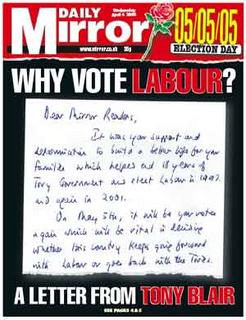 DAILY
Mirror
Wednesday
April 6 2005
www.mirror.co.uk 35p
05/05/05
ELECTION DAY
WHY VOTE LABOUR?
Dear Mirror Readers,
It was your support and
determination to build a better life for your
families which helped end 18 years of
Tory Government and elect Labour in 1997
and again in 2001.
On May 5th, it will be your votes
again which will be vital in deciding
whether this country keeps going forward
with Labour or goes back with the Tories.
A LETTER FROM TONY BLAIR
SEE PAGES 4 & 5